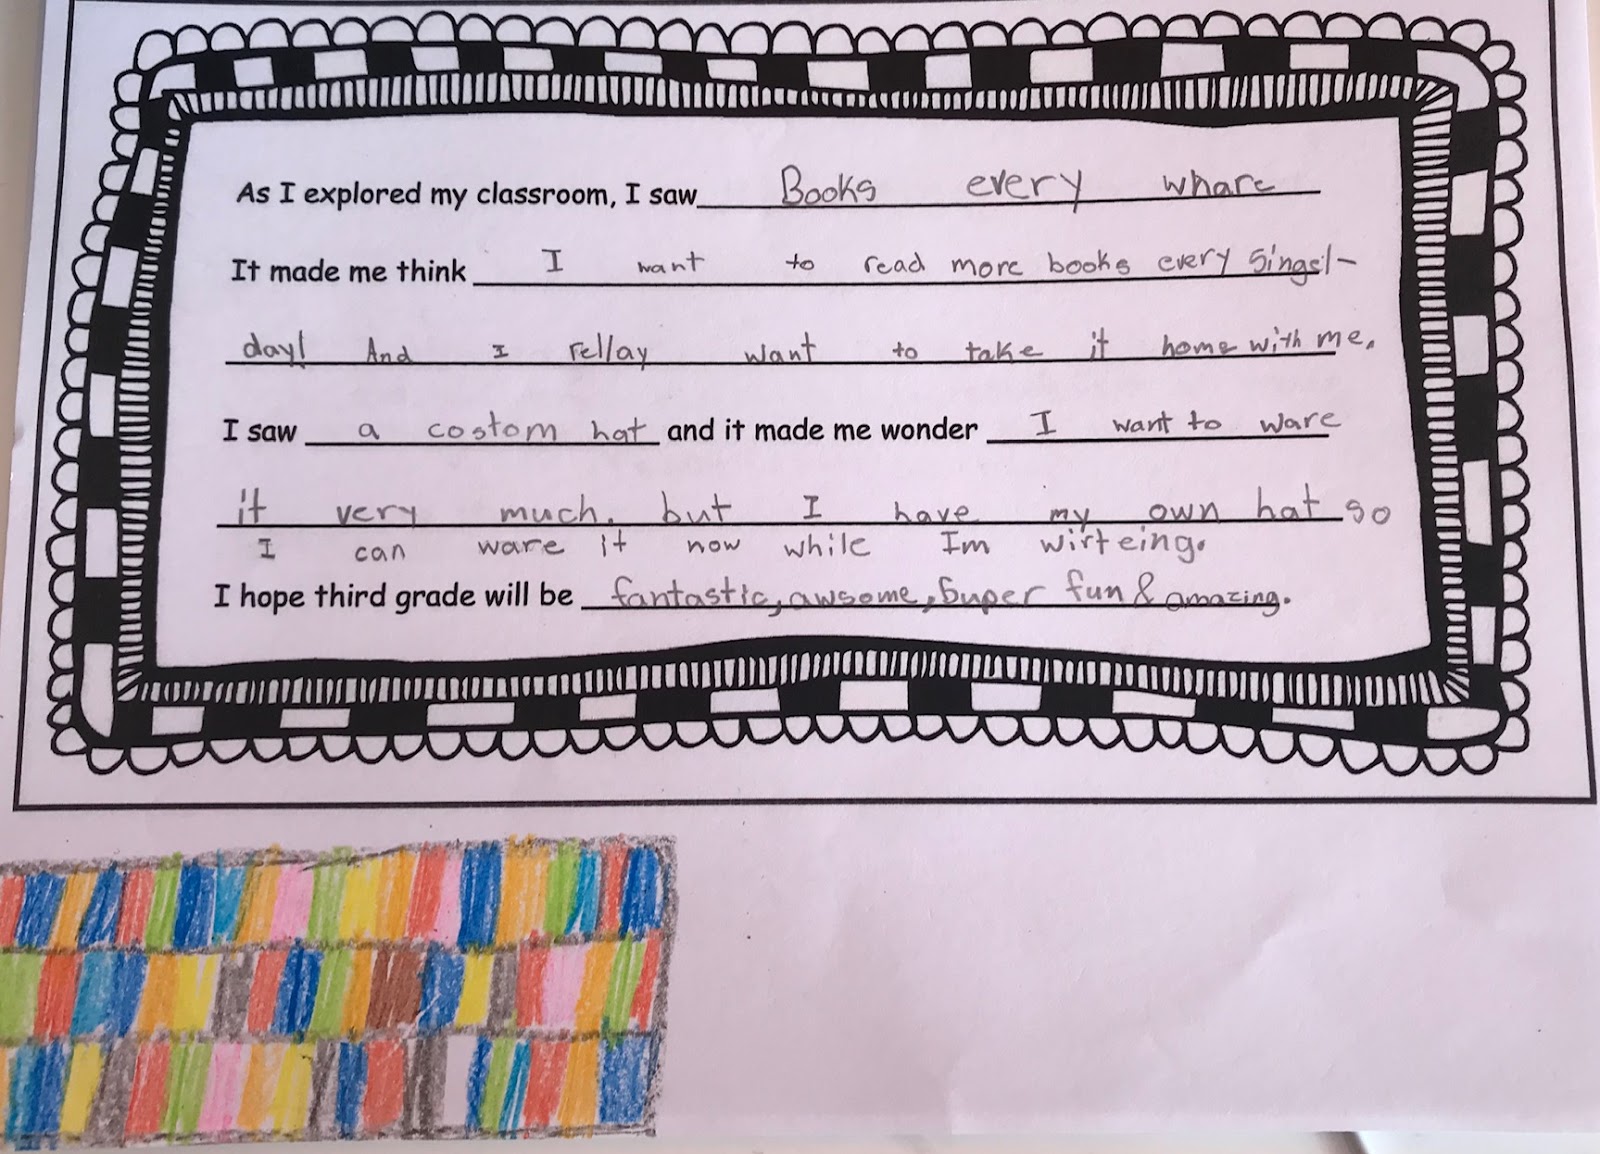 As I explored my classroom, I saw Books every whare
It made me think I want to read more books every singel-
day! And I rellay want to take it home with me.
I saw a costom hat and it made me wonder I want to ware
it very much. but I have my own hat so
I can ware it now while Im wirteing.
I hope third grade will be fantastic, awsome, super fun & amazing.